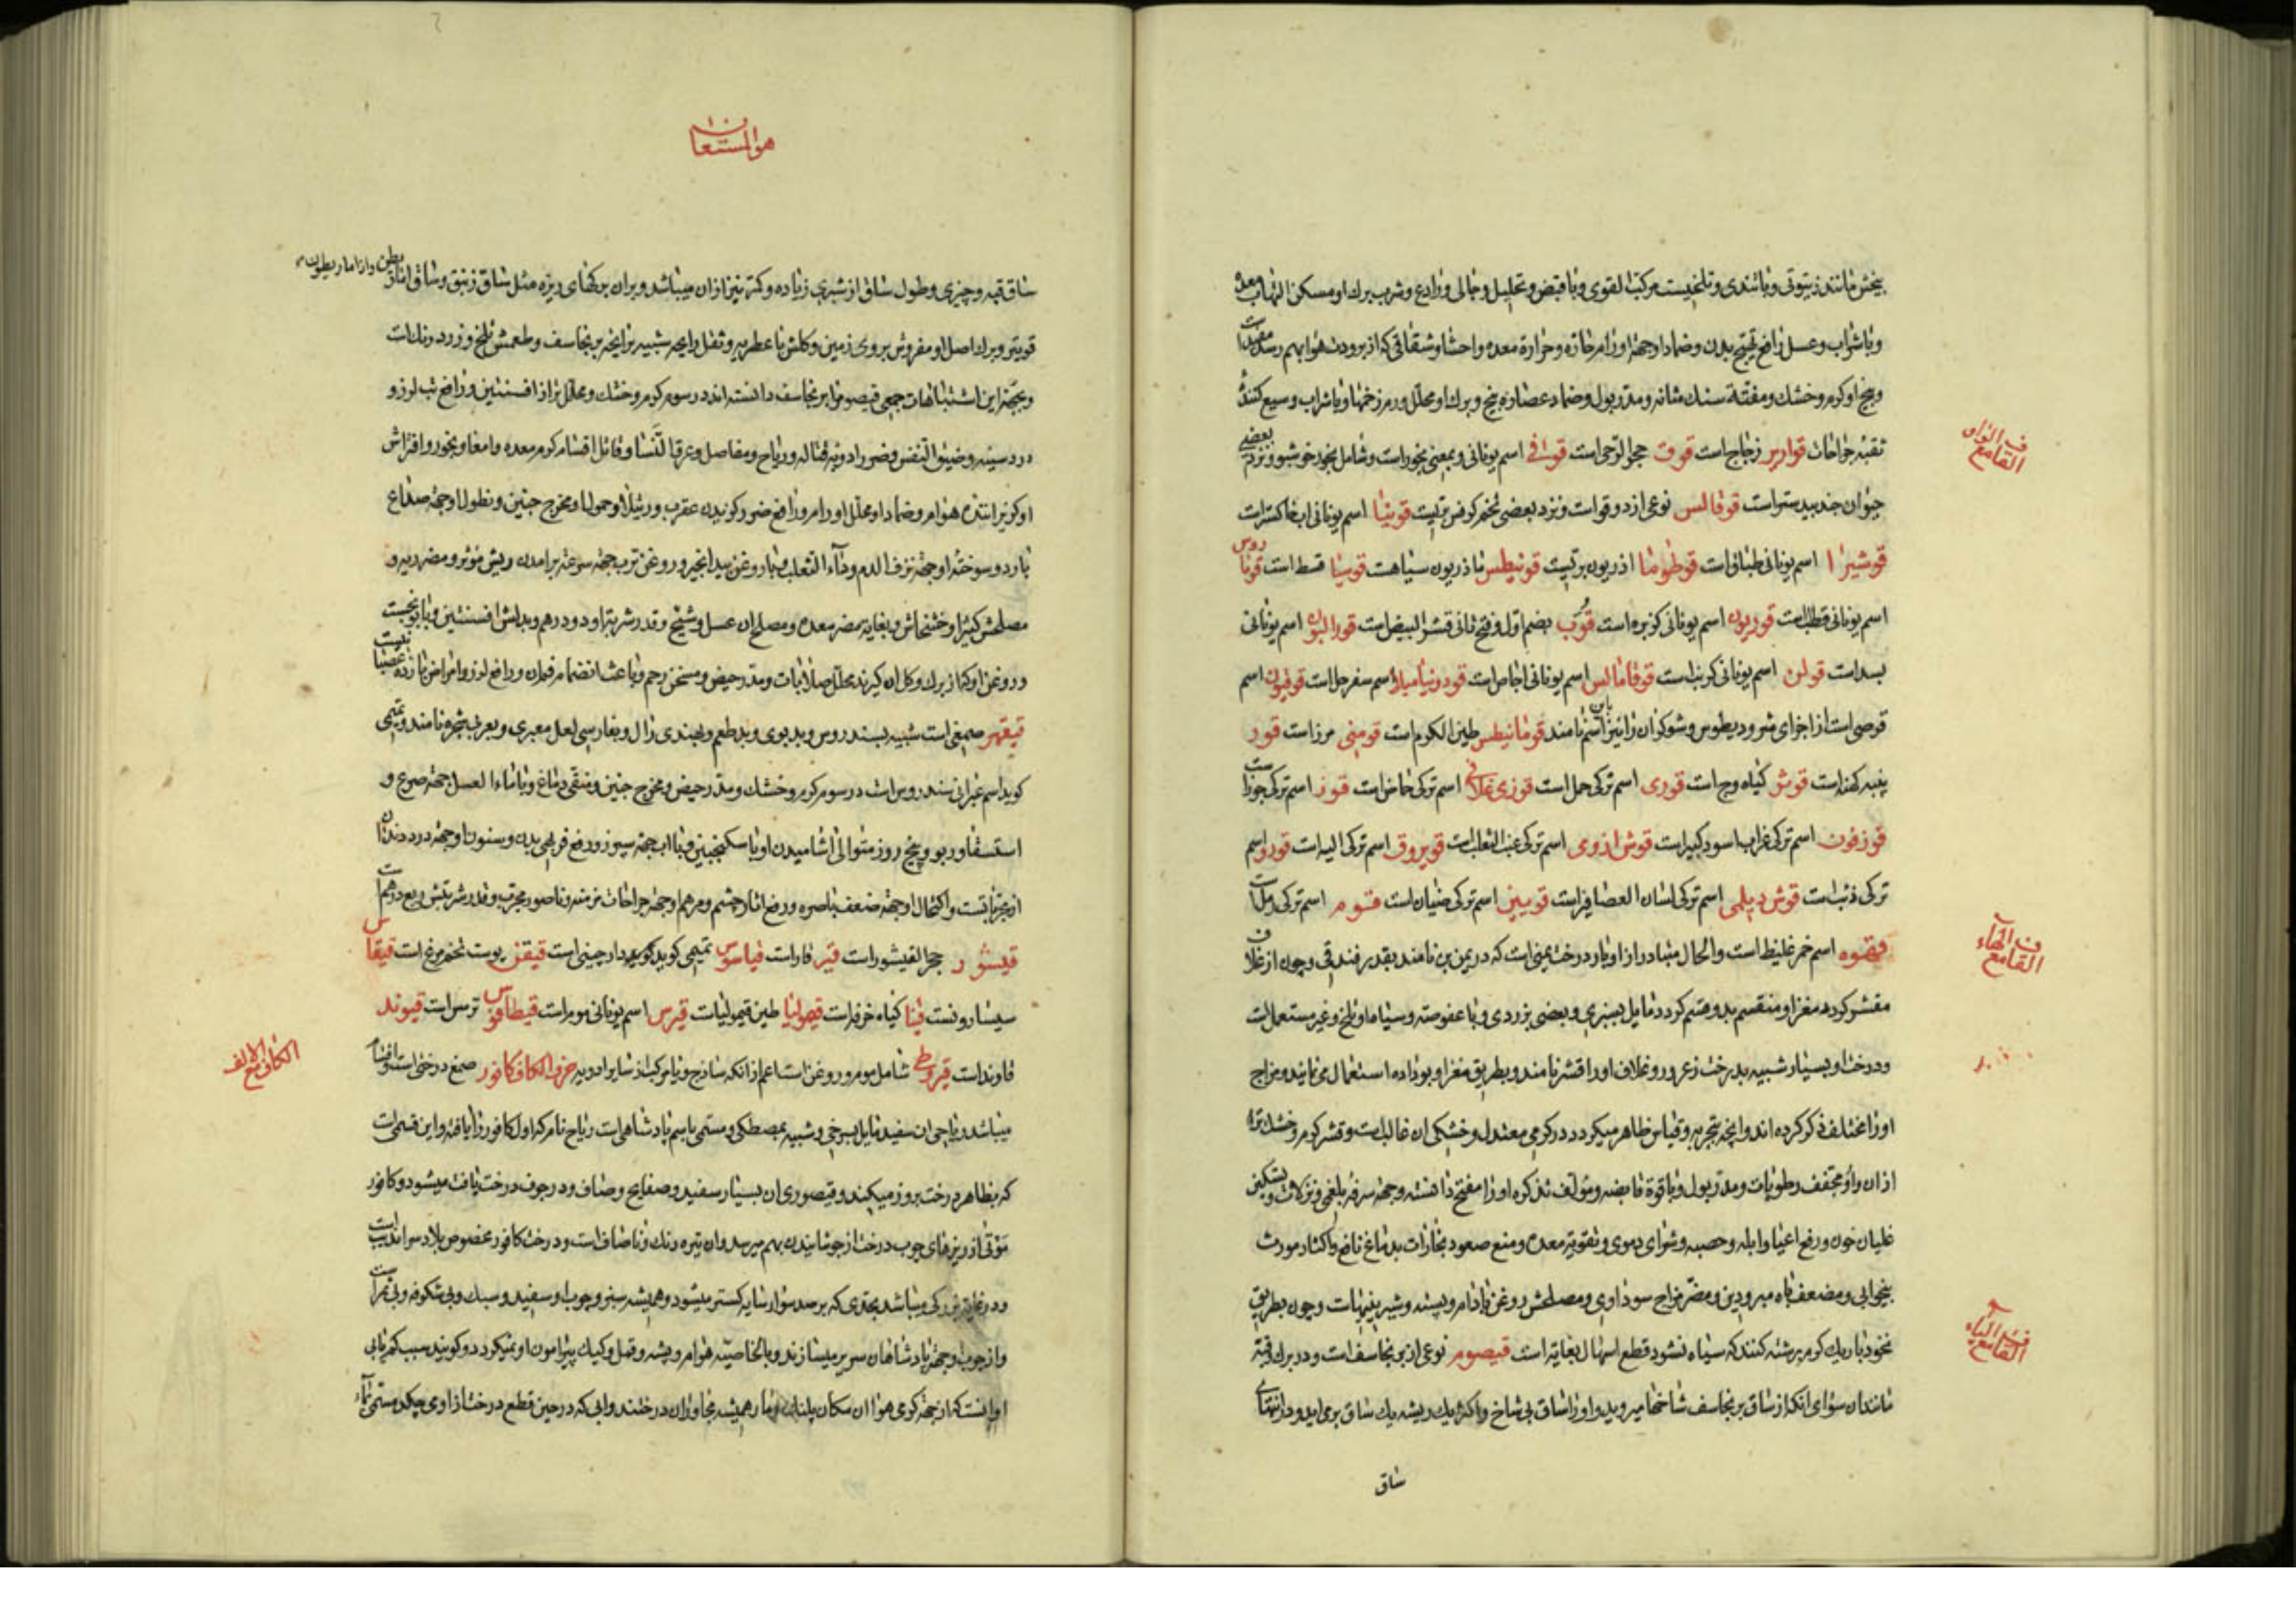 بیخش مانند زیتونی و با تندی و تلخیست مرکب القوی و با قبض و تحلیل و جالی و رادع و شرب برک او مسکن التهاب معده
و با شراب و عسل رافع تهیج بدن و ضمادا وجهة اورام حاره و حرارة معده و احشا و شقاقی که از برودت هوا بهم رسد مفیدا
و بیخ او کرم و خشک و مفتت سنک مثانه و مدر بول و ضماد عصاره بیخ و برک او محلل ورم زخمها و با شراب وسیع کننده
ثقبه جراحات قواریر زجاج است قوق حجر الرحی است قوافی اسم یونانی و بمعنی بخور است و شامل بخور خوشبو و نزد بعضی
حیوان جندبیدستر است قوقالس نوعی از دوقو است و نزد بعضی تخم کرفس بریست قونیا اسم یونانی اب خاکستر است
قوشیرا اسم یونانی طباق است قوطوما اذریون بریست قونیطس ماذریون سیاهست قوسیا قسط است
اسم یونانی قطلب است قوریون اسم یونانی کزبره است قوب بضم اول و فتح ثانی قشر البیض است قورالیون اسم یونانی
بسد است قولن اسم یونانی کرنب است قوقامالس اسم یونانی اجاص است قودونیامیلا اسم سفرجل است قوفیون اسم
قرصی است از اجزای مثرودیطوس و شوکران را نیز باین اسم نامند قومانیطس طین الکرم است قومنی مرز است قور
پنبه کهنه است قوش کیاه وج است قوری اسم ترکی حمل است قوزی غلاغی اسم ترکی حماض است قوز اسم ترکی جوز است
قوزغون اسم ترکی غراب اسود کبیر است قوش اوزومی اسم ترکی عنب الثعلب است قویروق اسم ترکی الیه است قورد اسم
ترکی ذئب است قوش دیلمی اسم ترکی لسان العصافیر است قویین اسم ترکی ضیان است قوم اسم ترکی رمل است
قهوه اسم خمر غلیظ است و الحال متبادر از او بار درخت یمنی است که در یمن بن نامند بقدر فندقی و چون از غلاف
مقشر کردد مغز او منقسم بدو قسم کردد مایل بسبزی و بعضی بزردی و با عفوصت و سیاه او تلخ و غیر مستعمل است
و درخت او بسیار شبیه بدرخت زعرور و غلاف او را قشر نامند و بطریق مغز او بو داده استعمال مینمایند و مزاج
او را مختلف ذکر کرده اند و انچه بتجربه و قیاس ظاهر میکردد در کرمی معتدل و خشکی ان غالب است و قشر کرم و خشک تر
از ان و او مجفف رطوبات و مدر بول و با قوة قابضه و مؤلف تذکره او را مفتح دانسته و جهة سرفه بلغمی و نزلات و تسکین
غلیان خون و رفع اعیا و ابله و حصبه و شرای دموی و تقویت معده و منع صعود بخارات بدماغ نافع و اکثار مورث
بیخوابی و مضعف باه مبرودین و مضر مزاج سوداوی و مصلحش روغن بادام و پسته و شیرینیهاست و چون بطریق
نخود باریک کرم برشته کنند که سیاه نشود قطع اسهال بغایة است قیصوم نوعی از برنجاسف است و در برک و قبه
مانند ان سوای انکه از ساق برنجاسف شاخها میروید و او را ساق بی شاخ و اکثر یک ریشه یک ساق برمی اید و در انتهای
ساق
ف القاف مع الواو
ف القاف مع الهاء
ف القاف مع الیاء
هو المستعان
ساق قبه و چیزی و طول ساق از شبری زیاده و کمتر نیز از ان میباشد و بران برکهای ریزه مثل ساق زنبق و ساق
قویتر و برک اصل او مفروش بروی زمین و کلش با عطریه و ثقل رایحه شبیه برایحه برنجاسف و طعمش تلخ و زرد رنک است
و بجهة این اشتباهات جمعی قیصوم را برنجاسف دانسته اند در سوم کرم و خشک و محلل تر از افسنتین و رافع تب لرز و
درد سینه و ضیق النفس و ضرر ادویه قتاله و ریاح و مفاصل و عرق النسا و قاتل اقسام کرم معده و امعا و بخور و افراش
او کریزاننده هوام و ضماد او محلل اورام و رافع ضرر کزیدن عقرب و رتیلا و حمولا مخرج جنین و نطولا وجهة صداع
بارد و سوخته او جهة نزف الدم و داء الثعلب و با روغن بید انجیر و روغن ترب جهة سرعة برامدن ریش موثر و مضر ریه و
مصلحش کتیرا و خشخاش و بغایه مضر معده و مصلح ان عسل و شیح و قدر شربت او دو درهم و بدلش افسنتین و بابونج است
و روغن او که از برک و کل ان کیرند محلل صلابات و مدر حیض و مسخن رحم و باعث انضمام فم ان و رافع لرز و امراض بارده عصبانیست
قیقهر صمغی است شبیه بسندروس و بدبوی و بد طعم و بهندی رال و بفارسی لعل معبری و بعربی شجره نامند و تمیمی
کوید اسم عبرانی سندروس است در سوم کرم و خشک و مدر حیض و مخرج جنین و منقی دماغ و با ماء العسل جهة صرع و
استسقا و ربو و پنج روز متوالی اشامیدن او با سکنجبین و با اب جهة سپرز و رفع فربهی بدن و سنون او جهة درد دندان
از مجرباتست و اکتحال او جهة ضعف باصره و رفع اثار چشم و مرهم او جهة جراحات مزمنه و ناصور مجرب و قدر شربتش ربع درهم است
قیشور حجر القیشور است قیر قار است قیاسوس تمیمی کوید کوید دارچینی است قیقن پوست تخم مرغ است قیقاس
سیسارونست قینا کیاه خرفه است قیمولیا طین قیمولیاست قیرس اسم یونانی موم است قیطاقوس ترس است قیوند
قاوند است قیروطی شامل موم و روغن است اعم از انکه ساذج و یا مرکب از سایر ادویه حرف الکاف کافور صمغ درختی است و اقسام
میباشد ریاحی ان سفید مایل بسرخی و شبیه بمصطکی و مسمی باسم پادشاهی است ریاح نام که اول کافور را یافته و این قسمی است
که بظاهر درخت بروز میکند و قیصوری ان بسیار سفید و صفایح و صاف و در جوف درخت یافت میشود و کافور
موتی از ریزهای چوب درخت از جوشانیدن بهم میرسد و ان تیره رنک و ناصاف است و درخت کافور مخصوص بلاد سراندیب است
و در غایة بزرکی میباشد بحدی که بر صد سوار سایه کستر میشود و همیشه سبز و چوب او سفید و سبک و بی شکوفه و بی ثمر است
و از چوب او جهة پادشاهان سریر میسازند و بالخاصیه هوام و پشه و قمل و کیک پیرامون او نمیکردد و کویند سبب کم یابی
او انست که از جهة کرمی هوا ان مکان پلنک و مار همیشه مجاور ان درختند و ابی که در حین قطع درخت از او میچکد مسمی بماء
الکاف مع الالف